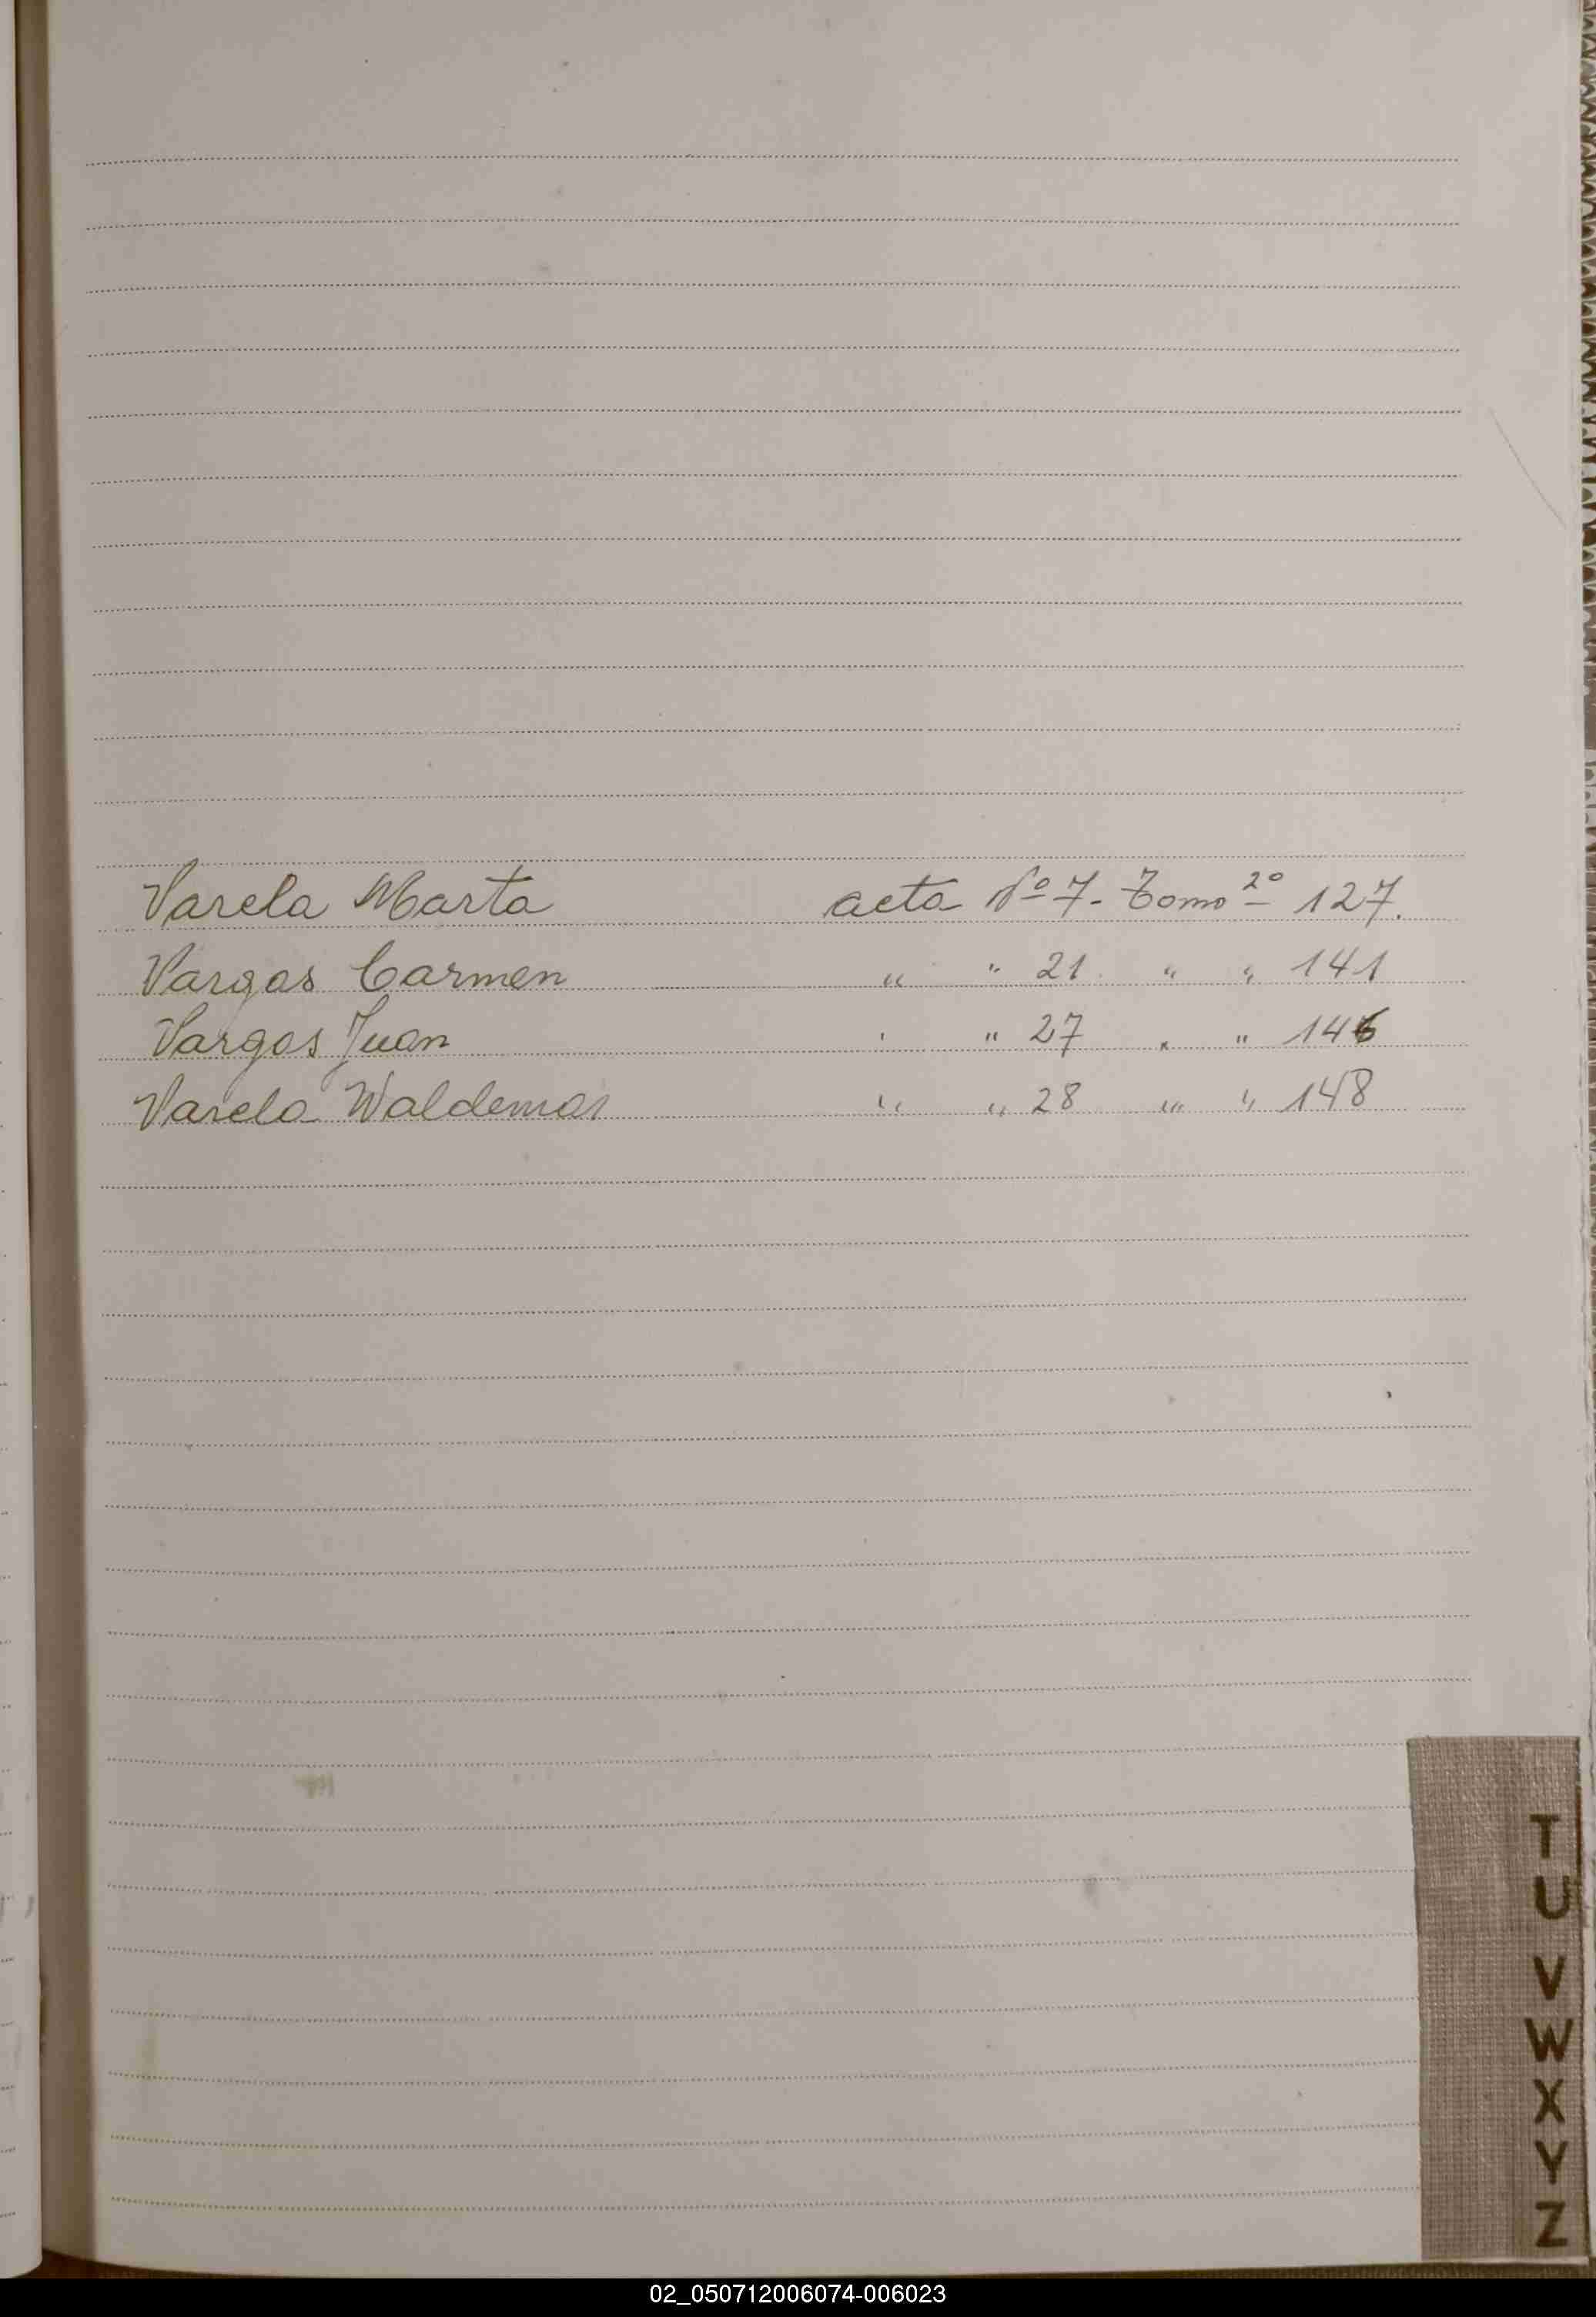 Varela Marta acta Nº 7- Tomo 2º 127.
Vargas Carmen " " 21 " " 141
Vargas Juan " " 27 " " 146
Varela Waldemar " " 28 " " 148
T
U
V
W
X
Y
Z
02_050712006074-006023